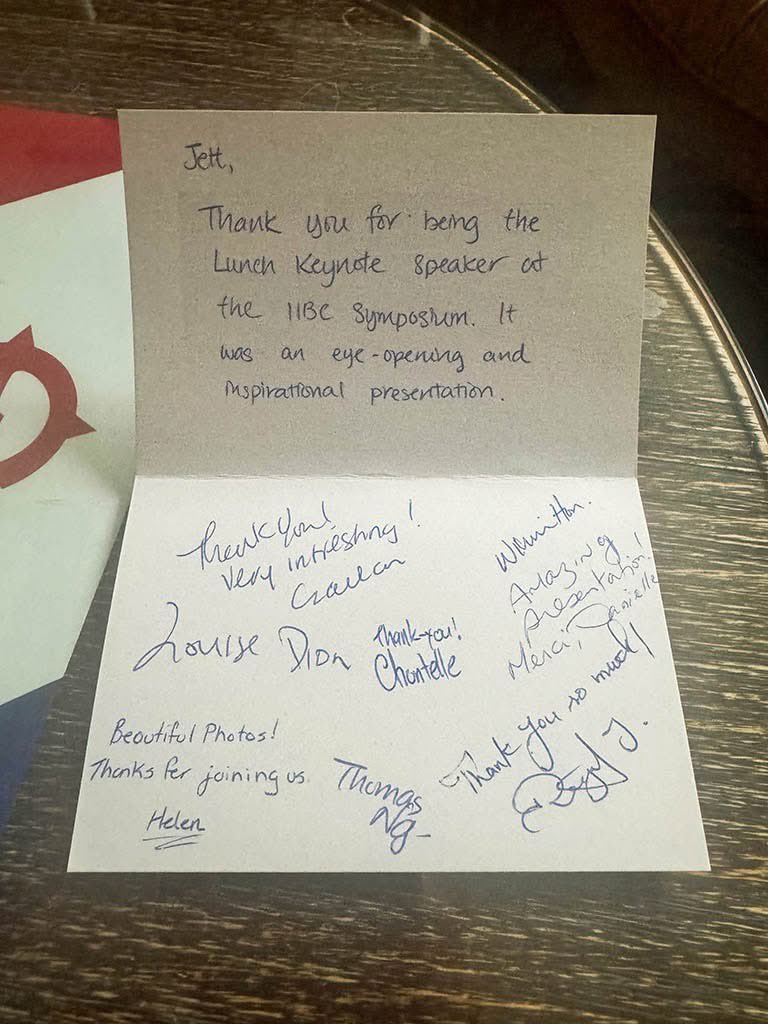 Jett,
Thank you for being the
Lunch Keynote Speaker at
the IIBC Symposium. It
was an eye-opening and
inspirational presentation.
Thank You!
Very intresting!
Amazing
presentation!
Merci, Danielle
Louise Dion
Thank-you!
Chantelle
Thank you so much!
Beautiful Photos!
Thanks for joining us.
Helen
Thomas
Ng